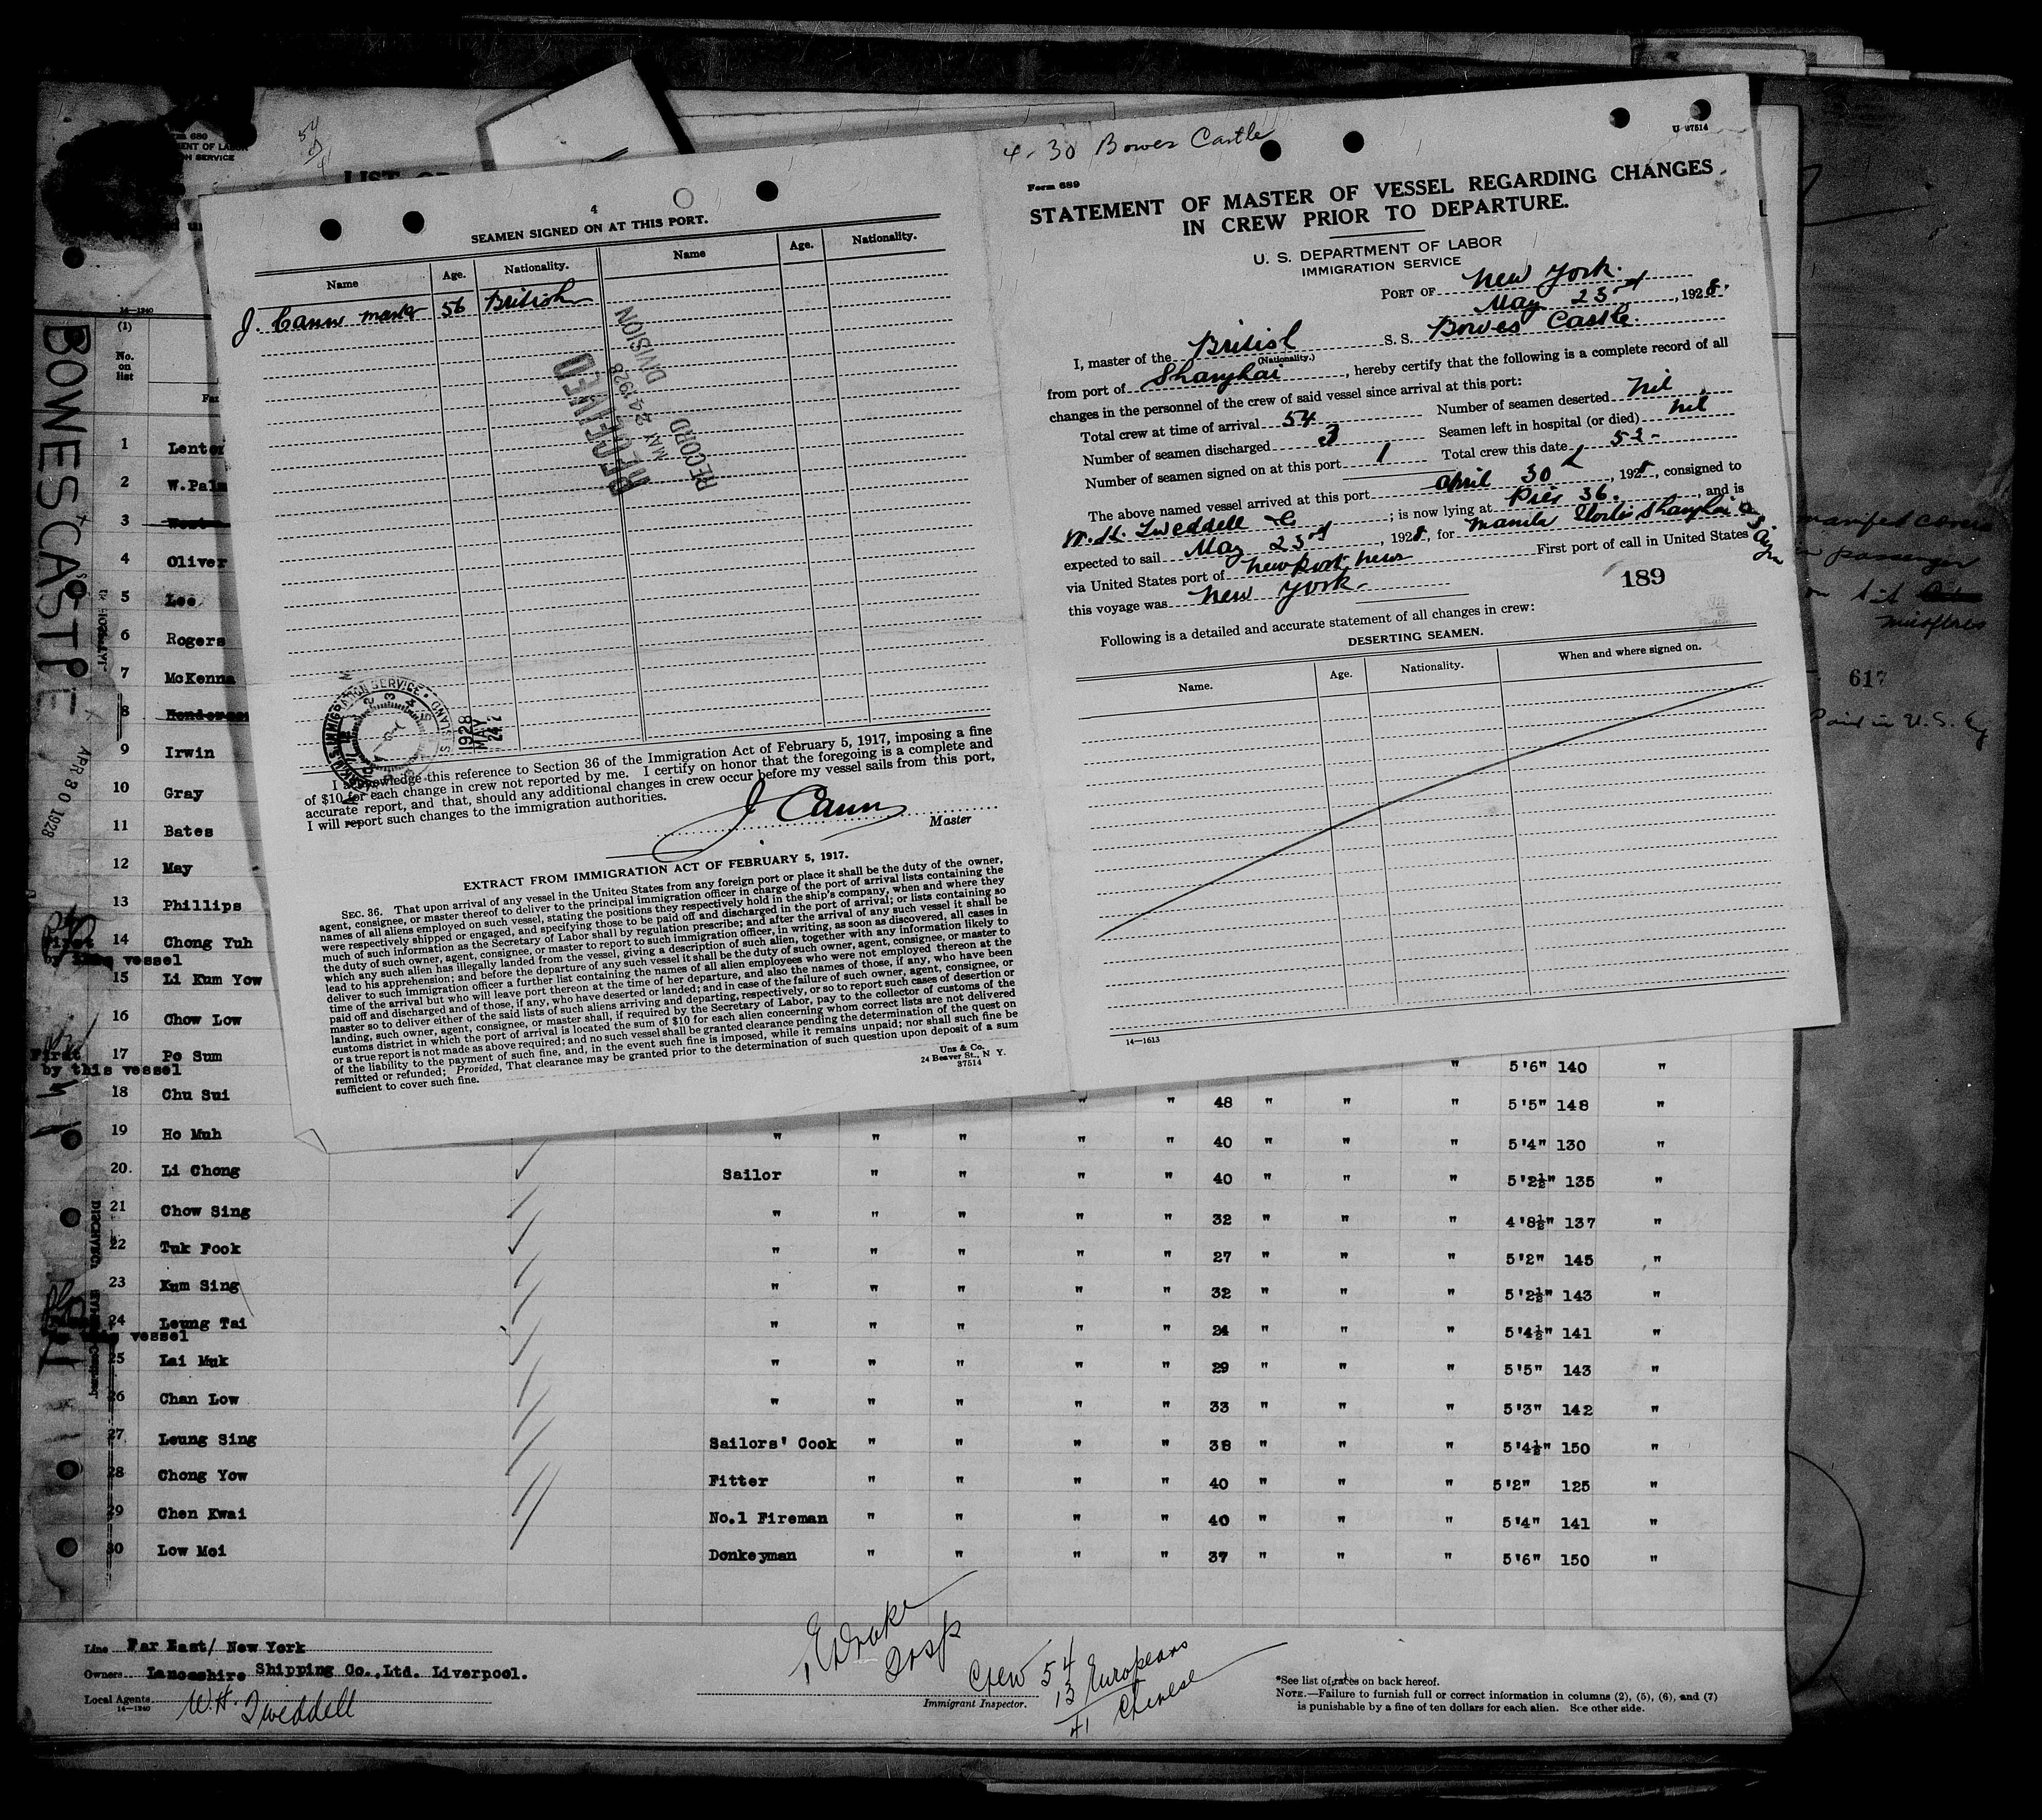 4-30 Bowes Castle
U 37514
Form 689
STATEMENT OF MASTER OF VESSEL REGARDING CHANGES
IN CREW PRIOR TO DEPARTURE.
U. S. DEPARTMENT OF LABOR
IMMIGRATION SERVICE
PORT OF New York.
May 23rd, 1928.
I, master of the British S. S. Bowes Castle.
(Nationality.)
from port of Shanghai, hereby certify that the following is a complete record of all
changes in the personnel of the crew of said vessel since arrival at this port:
Total crew at time of arrival 54 Number of seamen deserted nil
Number of seamen discharged 3 Seamen left in hospital (or died) nil
Number of seamen signed on at this port 1 Total crew this date 52-
The above named vessel arrived at this port April 30, 1928, consigned to
W. H. Tweddell & Co; is now lying at Pier 36., and is
expected to sail May 23rd, 1928, for Manila Iloilo Shanghai
via United States port of Newport News First port of call in United States
this voyage was New York.
189
Following is a detailed and accurate statement of all changes in crew:
DESERTING SEAMEN.
Name. Age. Nationality. When and where signed on.
14—1613
4
SEAMEN SIGNED ON AT THIS PORT.
Name Age. Nationality. Name Age. Nationality.
J. Cann master 56 British
RECEIVED
MAY 24 1928
RECORD DIVISION
1928
MAY
24
I acknowledge this reference to Section 36 of the Immigration Act of February 5, 1917, imposing a fine
of $10 for each change in crew not reported by me. I certify on honor that the foregoing is a complete and
accurate report, and that, should any additional changes in crew occur before my vessel sails from this port,
I will report such changes to the immigration authorities.
J Cann
Master
EXTRACT FROM IMMIGRATION ACT OF FEBRUARY 5, 1917.
SEC. 36. That upon arrival of any vessel in the United States from any foreign port or place it shall be the duty of the owner,
agent, consignee, or master thereof to deliver to the principal immigration officer in charge of the port of arrival lists containing the
names of all aliens employed on such vessel, stating the positions they respectively hold in the ship's company, when and where they
were respectively shipped or engaged, and specifying those to be paid off and discharged in the port of arrival; or lists containing so
much of such information as the Secretary of Labor shall by regulation prescribe; and after the arrival of any such vessel it shall be
the duty of such owner, agent, consignee, or master to report to such immigration officer, in writing, as soon as discovered, all cases in
which any such alien has illegally landed from the vessel, giving a description of such alien, together with any information likely to
lead to his apprehension; and before the departure of any such vessel it shall be the duty of such owner, agent, consignee, or master to
deliver to such immigration officer a further list containing the names of all alien employees who were not employed thereon at the
time of the arrival but who will leave port thereon at the time of her departure, and also the names of those, if any, who have been
paid off and discharged and of those, if any, who have deserted or landed; and in case of the failure of such owner, agent, consignee, or
master so to deliver either of the said lists of such aliens arriving and departing, respectively, or so to report such cases of desertion or
landing, such owner, agent, consignee, or master shall, if required by the Secretary of Labor, pay to the collector of customs of the
customs district in which the port of arrival is located the sum of $10 for each alien concerning whom correct lists are not delivered
or a true report is not made as above required; and no such vessel shall be granted clearance pending the determination of the quest on
of the liability to the payment of such fine, and, in the event such fine is imposed, while it remains unpaid; nor shall such fine be
remitted or refunded; Provided, That clearance may be granted prior to the determination of such question upon deposit of a sum
sufficient to cover such fine.
Unz & Co.
24 Beaver St., N. Y.
37514
14—1240
(1)
No.
on
list
BOWES CASTLE
APR 30 1928
1 Lenter
2 W.Palm
3
4 Oliver
5 Lee
6 Rogers
7 McKenna
8 Henderson
9 Irwin
10 Gray
11 Bates
12 May
13 Phillips
First 14 Chong Yuh
vessel
15 Li Kum Yow
16 Chow Low
First 17 Po Sum " 5'6" 140 "
by this vessel
18 Chu Sui " " 48 " " " 5'5" 148 "
19 Ho Muh " " " " " 40 " " " 5'4" 130 "
20. Li Chong Sailor " " " " 40 " " " 5'2½" 135 "
21 Chow Sing " " " " " 32 " " " 4'8½" 137 "
22 Tuk Fook " " " " " 27 " " " 5'2" 145 "
23 Kum Sing " " " " " 32 " " " 5'2½" 143 "
24 Leung Tai " " " " " 24 " " " 5'4½" 141 "
vessel
25 Lai Muk " " " " " 29 " " " 5'5" 143 "
26 Chan Low " " " " " 33 " " " 5'3" 142 "
27 Leung Sing Sailors' Cook " " " " 38 " " " 5'4½" 150 "
28 Chong Yow Fitter " " " " 40 " " " 5'2" 125 "
29 Chen Kwai No.1 Fireman " " " " 40 " " " 5'4" 141 "
30 Low Moi Donkeyman " " " " 37 " " " 5'6" 150 "
Line Far East/ New York
Owners Lancashire Shipping Co.,Ltd. Liverpool.
Local Agents W.H. Tweddell
14—1240
Immigrant Inspector.
Crew 54
13 Europeans
41 Chinese
*See list of races on back hereof.
NOTE.—Failure to furnish full or correct information in columns (2), (5), (6), and (7)
is punishable by a fine of ten dollars for each alien. See other side.
manifest covers
passenger
617
Paid in U.S. Cy